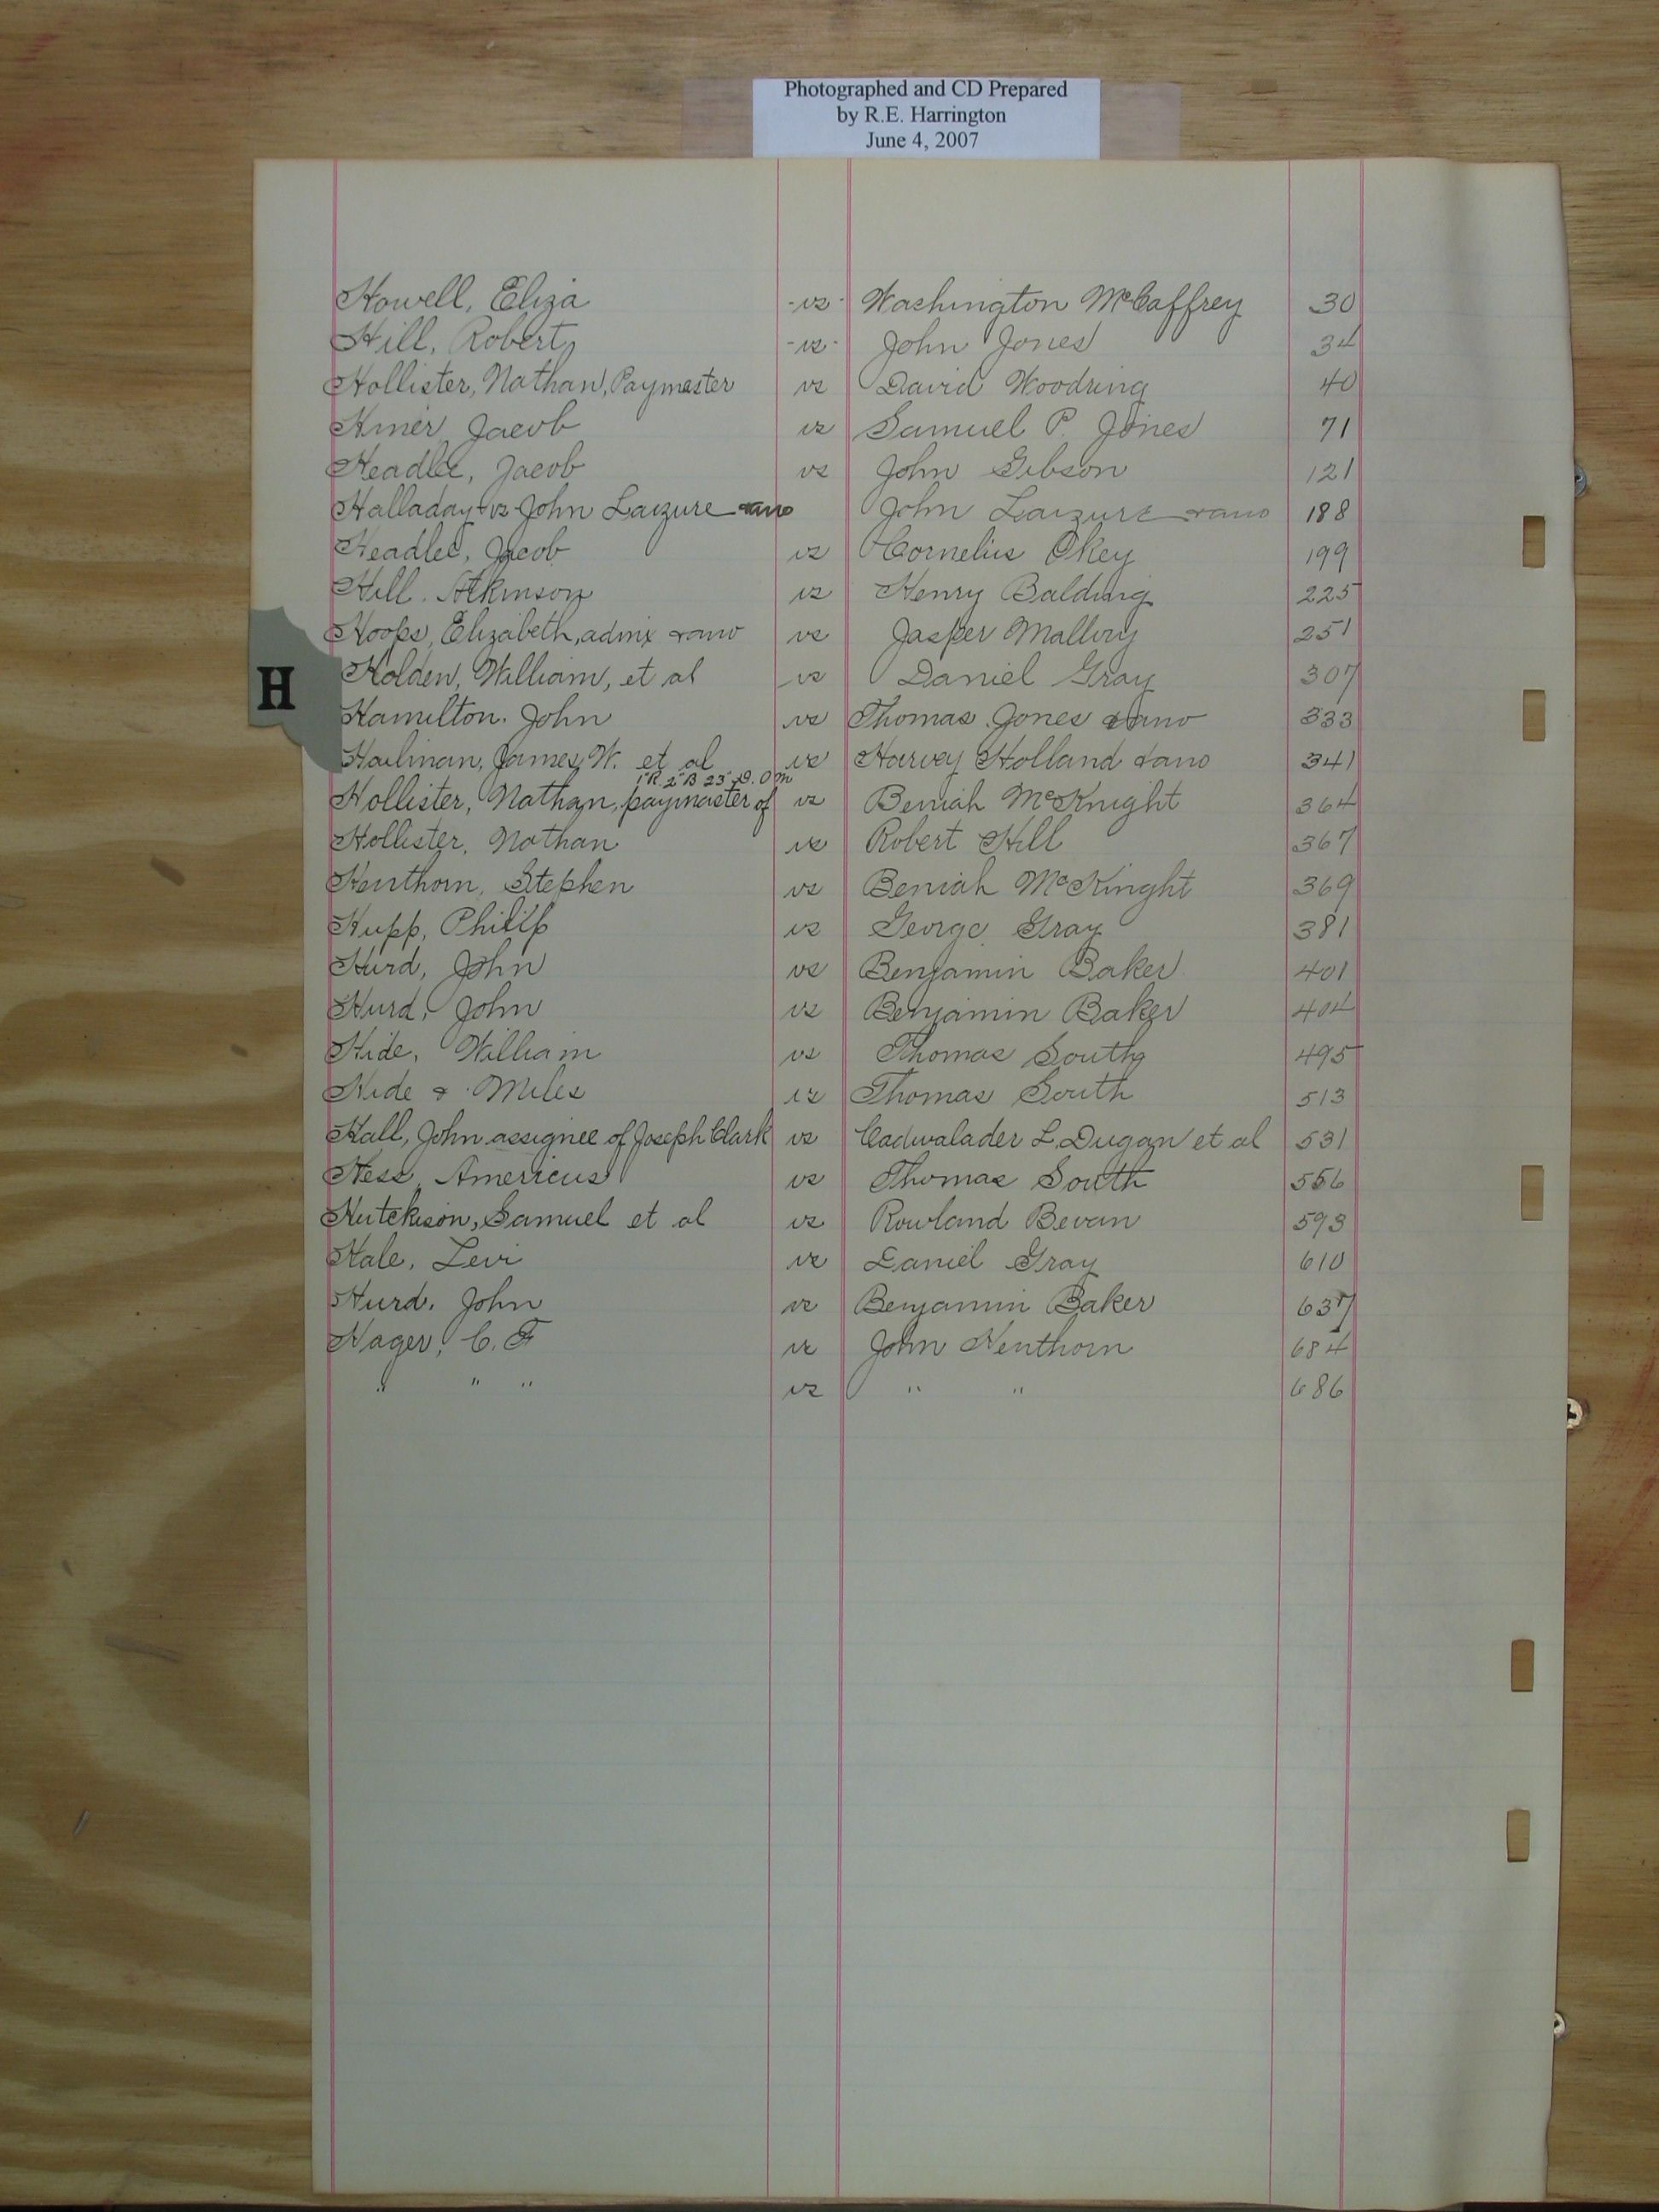 Photographed and CD Prepared
by R.E. Harrington
June 4, 2007
Howell, Eliza -vs- Washington McCaffrey 30
Hill, Robert -vs- John Jones 34
Hollister, Nathan, Paymaster vs David Woodring 40
Hiner Jacob vs Samuel P. Jones 71
Headlee, Jacob vs John Gibson 121
Halladay vs John Laizure & ano John Laizure & ano 188
Headlee, Jacob vs Cornelius Okey 199
Hill. Atkinson vs Henry Balding 225
Hoops, Elizabeth, admx & ano vs Jasper Mallory 251
H
Holden, William, et al vs Daniel Gray 307
Hamilton. John vs Thomas Jones & ano 333
Hailman, James W. et al vs Harvey Holland & ano 341
1"R. 2"B 23" D. O M
Hollister, Nathan, paymaster of vs Beniah McKnight 364
Hollister, Nathan vs Robert Hill 367
Henthorn, Stephen vs Beniah McKinght 369
Hupp, Philip vs George Gray 381
Hurd, John vs Benjamin Baker 401
Hurd, John vs Benjamin Baker 404
Hide, William vs Thomas South 495
Hide & Miles vs Thomas South 513
Hall, John assignee of Joseph Clark vs Cadwalader L. Dugan et al 531
Hess, Americus vs Thomas South 556
Hutchison, Samuel et al vs Rowland Bevan 593
Hale, Levi vs Daniel Gray 610
Hurd. John vs Benjamin Baker 637
Hager, C. F vs John Henthorn 684
" " " vs " " 686